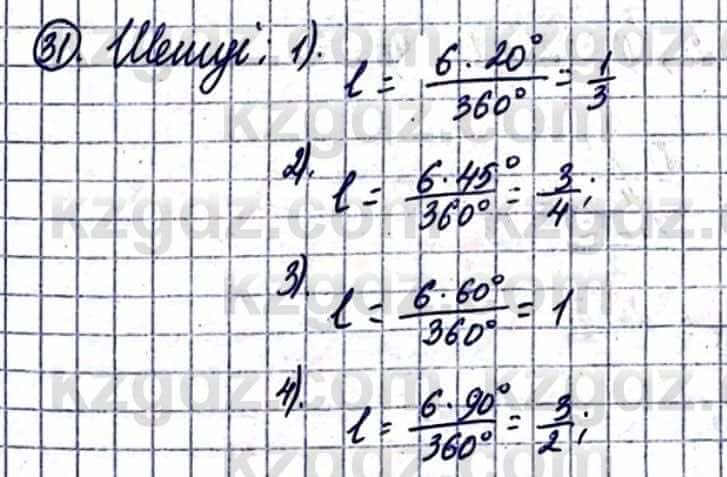 31). Шешуі: 1). l = 6 · 20° / 360° = 1/3
2). l = 6 · 45° / 360° = 3/4;
3). l = 6 · 60° / 360° = 1
4). l = 6 · 90° / 360° = 3/2;
kzgdz.com kzgdz.com
kzgdz.com kzgdz.com
kzgdz.com
kzgdz.com kzgdz.com
kzgdz.com